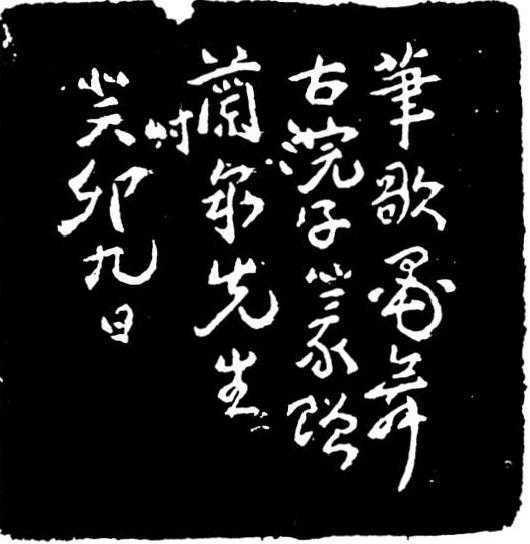 筆歌墨舞
古浣子篆贈
蘭泉先生
時癸卯九日